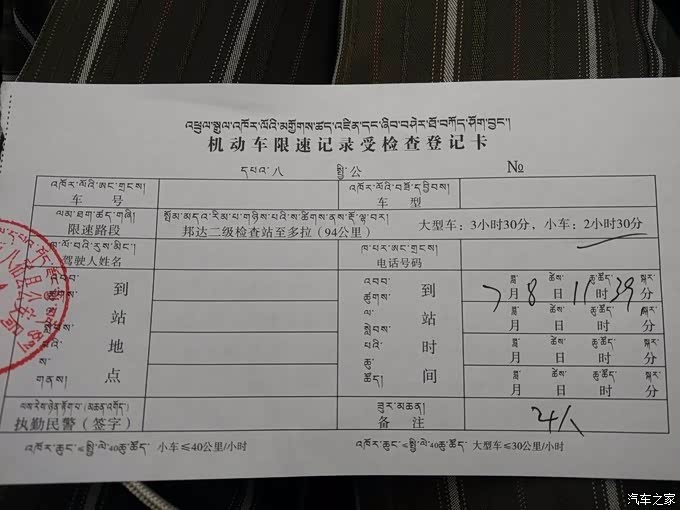 འཕྲུལ་སྐུལ་འཁོར་ལོའི་མགྱོགས་ཚད་འཛིན་དང་ཞིབ་བཤེར་ཐོ་བཀོད་ཤོག་བྱང་།
机动车限速记录受检查登记卡
དཔའ་八 སྤྱི་公 №
འཁོར་ལོའི་ཨང་གྲངས།
车号
车型
ལམ་ཐག་ཚད་གཞི།
限速路段
邦达二级检查站至多拉（94公里）
大型车：3小时30分，小车：2小时30分
驾驶人姓名
ཁ་པར་ཨང་གྲངས།
电话号码
到站地点
到站时间
7月8日11时39分
月 日 时 分
月 日 时 分
月 日 时 分
执勤民警（签字）
ཟུར་མཆན།
备注
24人
小车≤40公里/小时
大型车≤30公里/小时
汽车之家